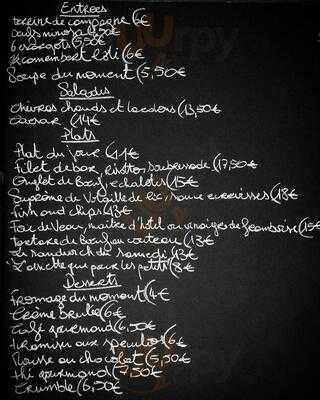 Entrées
terrine de campagne (6€
Oeufs mimosa 4,50€
6 escargots 5,50€
camembert rôti (6€
Soupe du moment (5,50€
Salades
chèvres chauds et lardons (13,50€
César (14€
Plats
Plat du jour (11€
Filet de bar, risotto Soubressade (17,50€
Onglet de Boeuf échalotes (15€
Suprême de Volaille de sauce écrevisses (18€
Fish and chips 13€
Foie de Veau, maître d'hôtel ou vinaigre de framboise (15€
Tartare de Boeuf au couteau (13€
Le sandwich du samedi (13€
L'assiette que pour les petits (8€
Desserts
Fromage du moment (4€
Crème Brulée (6€
Café gourmand (6,50€
tiramisu aux speculos (6€
Mousse au chocolat (5,50€
thé gourmand (7,50€
Crumble (6,50€